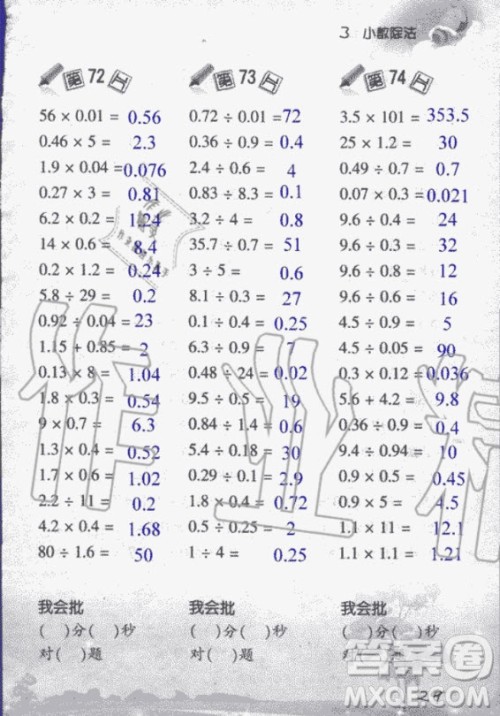 3 小数除法
第72
56 × 0.01 = 0.56
0.46 × 5 = 2.3
1.9 × 0.04 = 0.076
0.27 × 3 = 0.81
6.2 × 0.2 = 1.24
14 × 0.6 = 8.4
0.2 × 1.2 = 0.24
5.8 ÷ 29 = 0.2
0.92 ÷ 0.04 = 23
1.15 + 0.85 = 2
0.13 × 8 = 1.04
1.8 × 0.3 = 0.54
9 × 0.7 = 6.3
1.3 × 0.4 = 0.52
1.7 × 0.6 = 1.02
2.2 ÷ 11 = 0.2
4.2 × 0.4 = 1.68
80 ÷ 1.6 = 50
我会批
( )分( )秒
对( )题
第73
0.72 ÷ 0.01 = 72
0.36 ÷ 0.9 = 0.4
2.4 ÷ 0.6 = 4
0.83 ÷ 8.3 = 0.1
3.2 ÷ 4 = 0.8
35.7 ÷ 0.7 = 51
3 ÷ 5 = 0.6
8.1 ÷ 0.3 = 27
0.1 ÷ 0.4 = 0.25
6.3 ÷ 0.9 = 7
0.48 ÷ 24 = 0.02
9.5 ÷ 0.5 = 19
0.84 ÷ 1.4 = 0.6
5.4 ÷ 0.18 = 30
0.29 ÷ 0.1 = 2.9
1.8 × 0.4 = 0.72
0.5 ÷ 0.25 = 2
1 ÷ 4 = 0.25
我会批
( )分( )秒
对( )题
第74
3.5 × 101 = 353.5
25 × 1.2 = 30
0.49 ÷ 0.7 = 0.7
0.07 × 0.3 = 0.021
9.6 ÷ 0.4 = 24
9.6 ÷ 0.3 = 32
9.6 ÷ 0.6 = 16
4.5 ÷ 0.9 = 5
4.5 ÷ 0.05 = 90
0.3 × 0.12 = 0.036
5.6 + 4.2 = 9.8
0.36 ÷ 0.9 = 0.4
9.4 ÷ 0.94 = 10
0.9 × 0.5 = 0.45
0.9 × 5 = 4.5
1.1 × 11 = 12.1
1.1 × 1.1 = 1.21
我会批
( )分( )秒
对( )题
作业精
答案圈
MXQE.COM